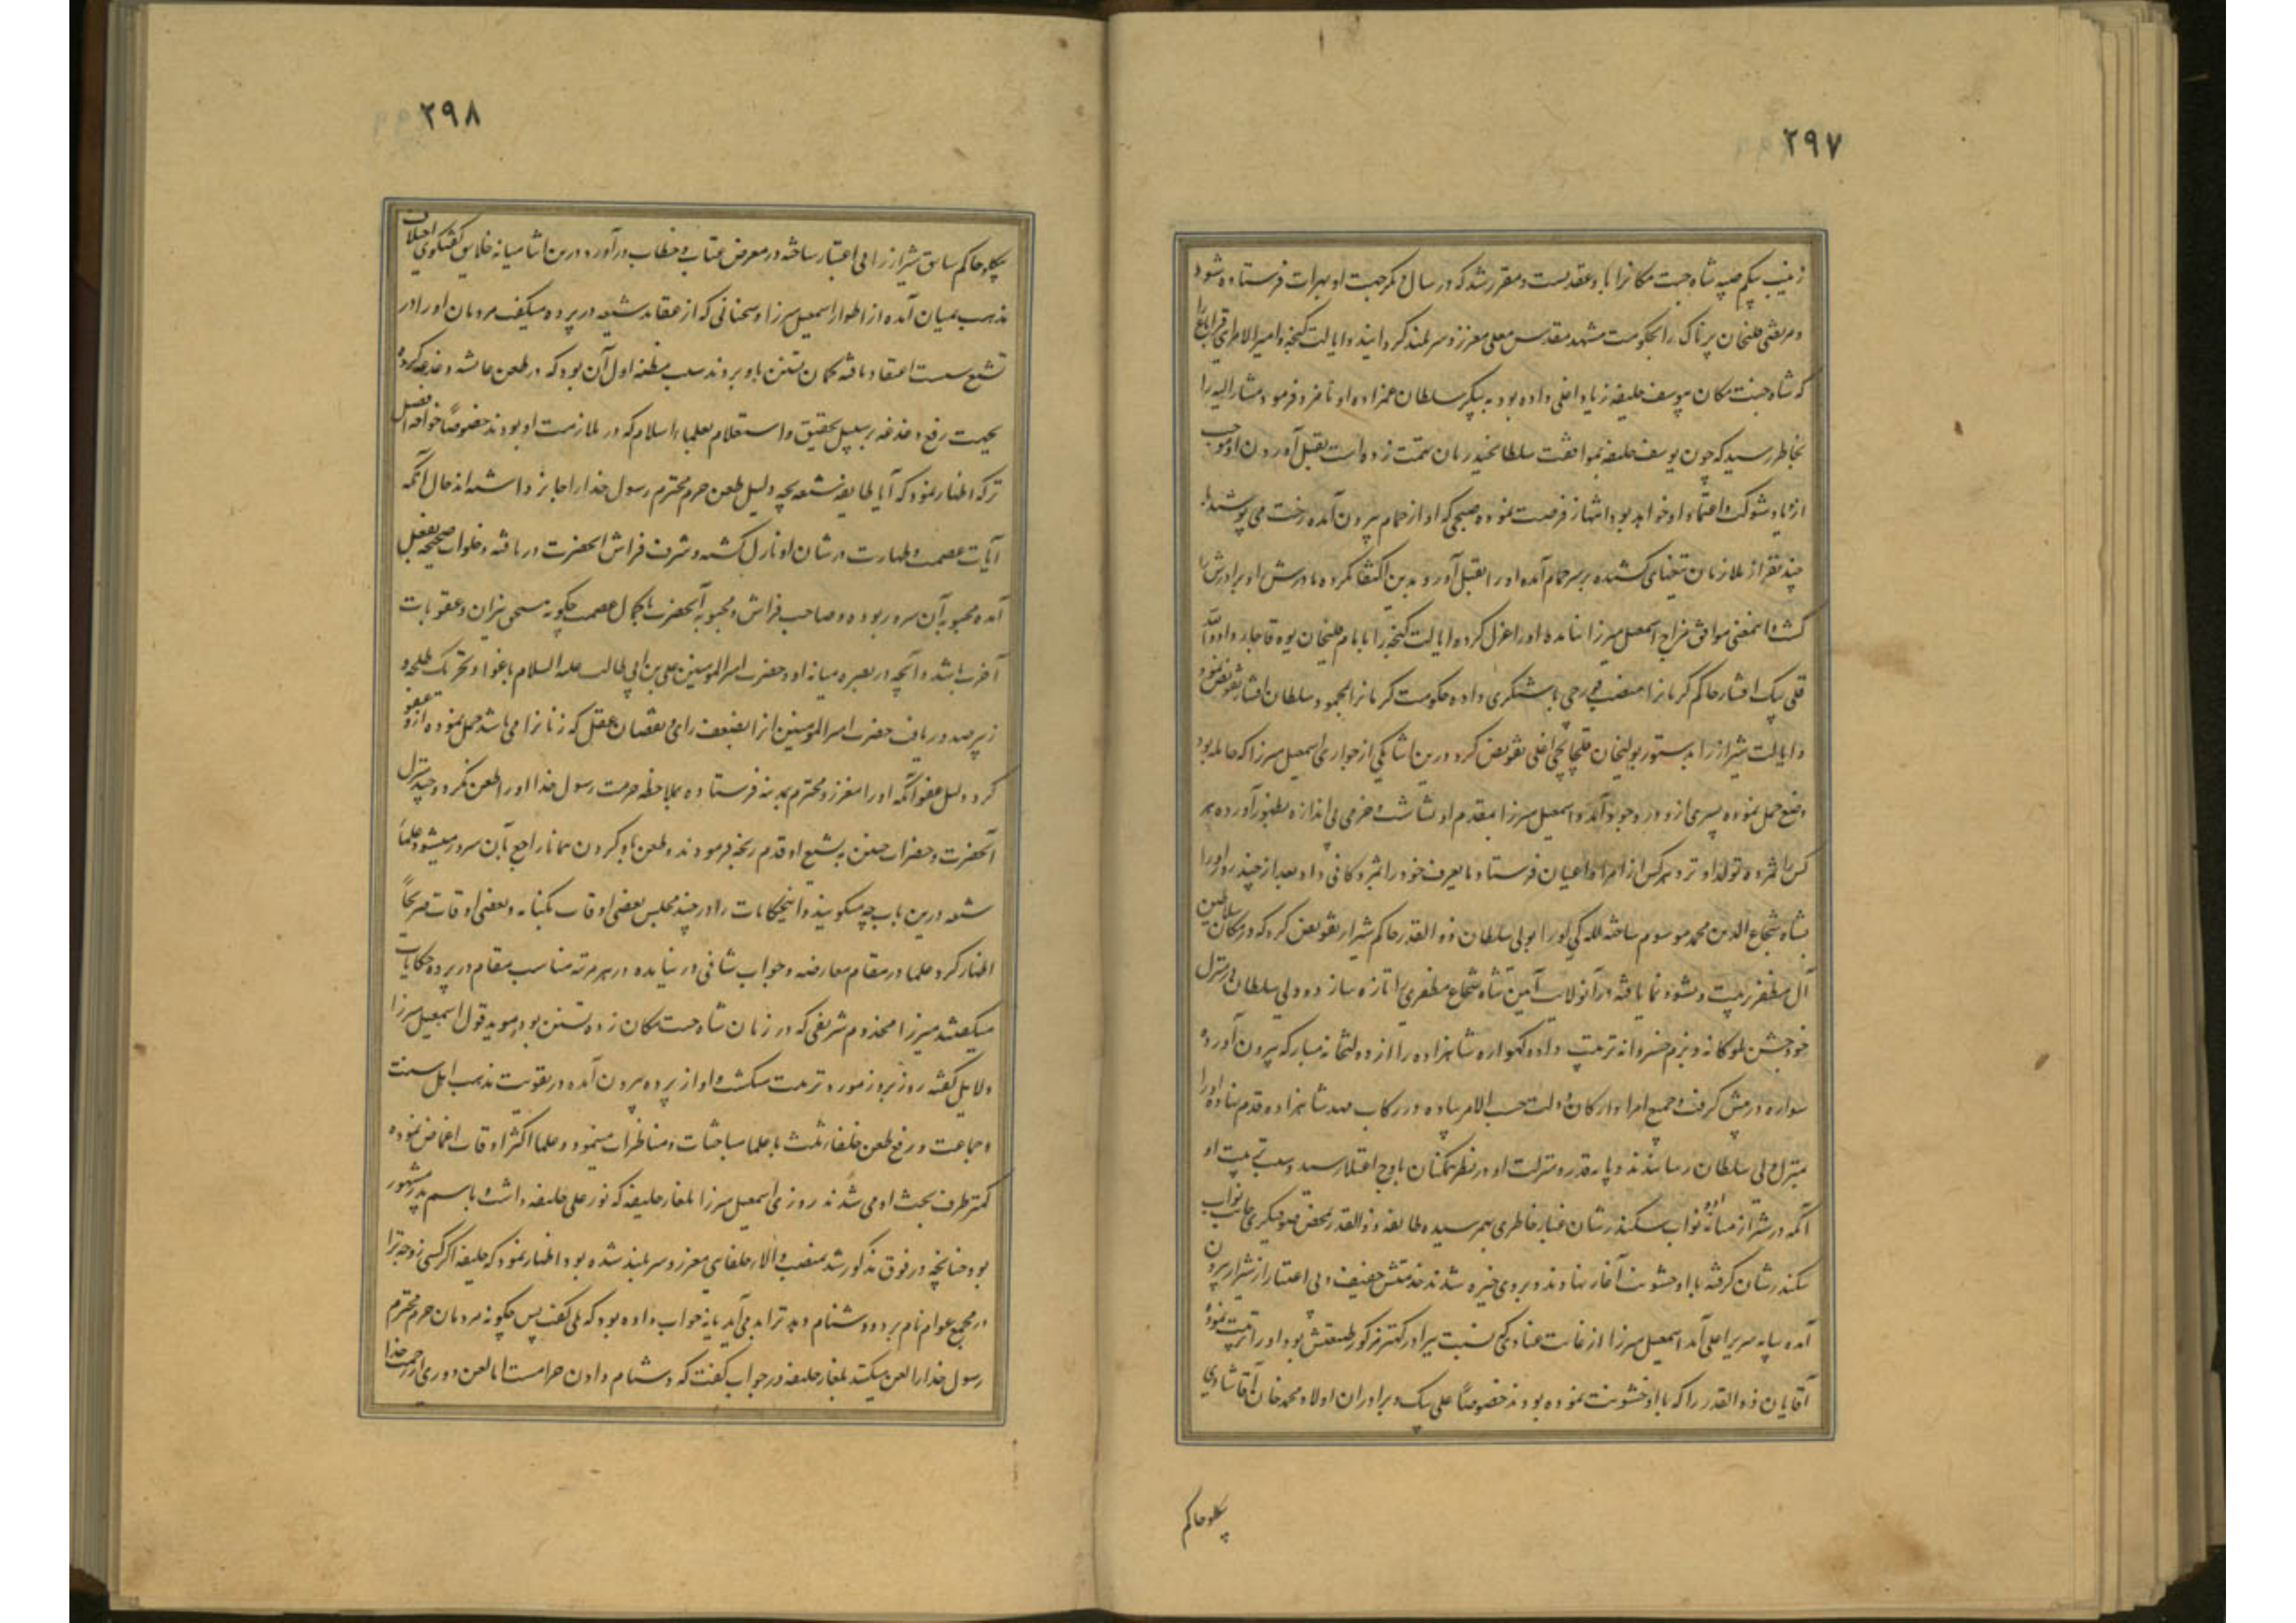 ۲۹۷
زینب بیگم صبیه شاه جنت مکانرا باو عقد بست و مقرر شد که در سال دیگر جهت او بهرات فرستاده شود
و مرتضی قلیخان پرناک را بحکومت مشهد مقدس معلی معزز و سربلند گردانید و ایالت گنجه و امیرالامرای قراباغ را
که شاه جنت مکان بیوسف خلیفه زیاد اغلی داده بود به پیکر سلطان عمزاده او نامزد فرمود مشارالیه را
بخاطر رسید که چون یوسف خلیفه بموافقت سلطانحیدر میان تهمت زده است بقتل آوردن او موجب
ازدیاد شوکت و اعتماد او خواهد بود انتهاز فرصت نموده صبحی که او از حمام بیرون آمده رخت می پوشید با
چند نفر از ملازمان تیغهای کشیده بر سر حمام آمده او را بقتل آورد و بدین اکتفا نکرده مادرش و برادرش را
کشت اینمعنی موافق مزاج اسمعیل میرزا نیامده او را عزل کرده ایالت گنجه را بامام قلیخان یوه قاجار داد و الله
قلی بیک افشار حاکم کرمانرا منصب قورچی باشیگری داده حکومت کرمانرا بمحمود سلطان افشار تفویض نمود
و ایالت شیراز را بدستور بولیخان قلخانچی اغلی تفویض کرد درین اثنا یکی از جواری اسمعیل میرزا که حامله بود
وضع حمل نموده پسری ازو در وجود آمد و اسمعیل میرزا بمقدم او بشاشت و خرمی بی اندازه بظهور آورده بهر
کس را مژده تولد او نزد هر کس از امراء و اعیان فرستاد تا بعرف خود را مژده کافی داد بعد از چند روز او را
بشاه شجاع الدین محمد موسوم ساخته للگی او را بولی سلطان ذوالقدر حاکم شیراز تفویض کرد که در مکان سلاطین
آل مظفر تربیت و نشو و نما یافته در آنولایت آیین شاه شجاع مظفری را تازه سازد و ولی سلطان در منزل
خود جشن ملوکانه و بزم خسروانه ترتیب داده گهواره شاهزاده را از دولتخانه مبارکه بیرون آورده
سواره در پیش گرفت و جمیع امرا و ارکان دولت حسب الامر پیاده در رکاب مهد شاهزاده قدم نهاده او را
بمنزل ولی سلطان رسانیدند و پایه قدر و منزلت او در نظر همگنان باوج اعتلا رسید و سبب تربیت او
آنکه در شیراز میانه او و نواب سکندرشان غبار خاطری بهم رسیده طایفه ذوالقدر بمحض صوفیگری جانب نواب
سکندرشان گرفته با او خشونت آغاز نهادند و بروی خیره شدند خدمتش خفیف و بی اعتبار از شیراز بیرون
آمده بپایه سریر اعلی آمد اسمعیل میرزا از غایت عنادی که نسبت ببرادر کهتر مرکوز طبیعتش بود او را تربیت نموده
آقایان ذوالقدر را که با او خشونت نموده بودند خصوصاً علی بیک و برادران اولاد محمد خان آقا شادی
پکلو حاکم
۲۹۸
پکلو حاکم سابق شیراز را بی اعتبار ساخته در معرض عتاب و خطاب درآورد درین اثنا میانه خلایق گفتگوی اختلاف
مذهب بمیان آمده از اطوار اسمعیل میرزا و سخنانی که از عقاید شیعه در پرده میگفت مردمان او را در
تشیع سست اعتقاد یافته گمان تسنن باو بردند سبب مظنه اول آن بود که در طعن عایشه دغدغه کرده
بجهت رفع دغدغه بر سبیل تحقیق و استعلام بعلماء اسلام که در ملازمت او بودند خصوصاً خواجه افضل
ترکه اظهار نمود که آیا طایفه شیعه بچه دلیل طعن حرم محترم رسول خدا را جایز داشته اند حال آنکه
آیات عصمت و طهارت در شان او نازل گشته و شرف فراش آنحضرت دریافته و خلوات صحیحه بفعل
آمده محبوبه آن سرور بوده و صاحب فراش و محبوبه آنحضرت بکمال عصمت چگونه مستحق نیران و عقوبات
آخرت باشد و آنچه در بصره میانه او و حضرت امیرالمومنین علی بن ابی طالب علیه السلام باغوا و تحریک طلحه و
زبیر صدور یافت حضرت امیرالمومنین انرا بضعف رای و نقصان عقل که زنانرا می باشد حمل نموده ازو عفو
کرد دلیل عفو آنکه او را معزز و محترم بمدینه فرستاده بملاحظه حرمت رسول خدا او را طعن نکرد و چند منزل
آنحضرت و حضرات حسنین به تشییع او قدم رنجه فرمودند و طعن باو کردن همانا راجع بآن سرور میشود علما
شیعه درین باب چه میگویند و اینحکایات را در چند مجلس بعضی اوقات بکنایه و بعضی اوقات صریحاً
اظهار کرد علما در مقام معارضه و جواب شافی در نیامده در هر مرتبه مناسب مقام در پرده حکایات
میگفتند میرزا مخدوم شریفی که در زمان شاه جنت مکان زده تسنن بود موید قول اسمعیل میرزا
دلایل گفته روز بروز مورد تربیت میگشت و او از پرده بیرون آمده در تقویت مذهب اهل سنت
و جماعت و رفع طعن خلفاء ثلث با علما مباحثات و مناظرات مینمود و علما اکثر اوقات اغماض نموده
کمتر طرف بحث او می شدند روزی اسمعیل میرزا بلغار خلیفه که نور علی خلیفه داشت باسم پدر مشهور
بود چنانچه در فوق مذکور شد بمنصب والاء خلفایی معزز و سربلند شده بود اظهار نمود که خلیفه اگر کسی زوجه ترا
در مجمع عوام نام برد و دشنام دهد ترا بد می آید یا نه جواب داده بود که بلی گفت پس چگونه مردمان حرم محترم
رسول خدا را لعن میکنند بلغار خلیفه در جواب گفت که دشنام دادن حرامست اما لعن دوری از رحمت خدا